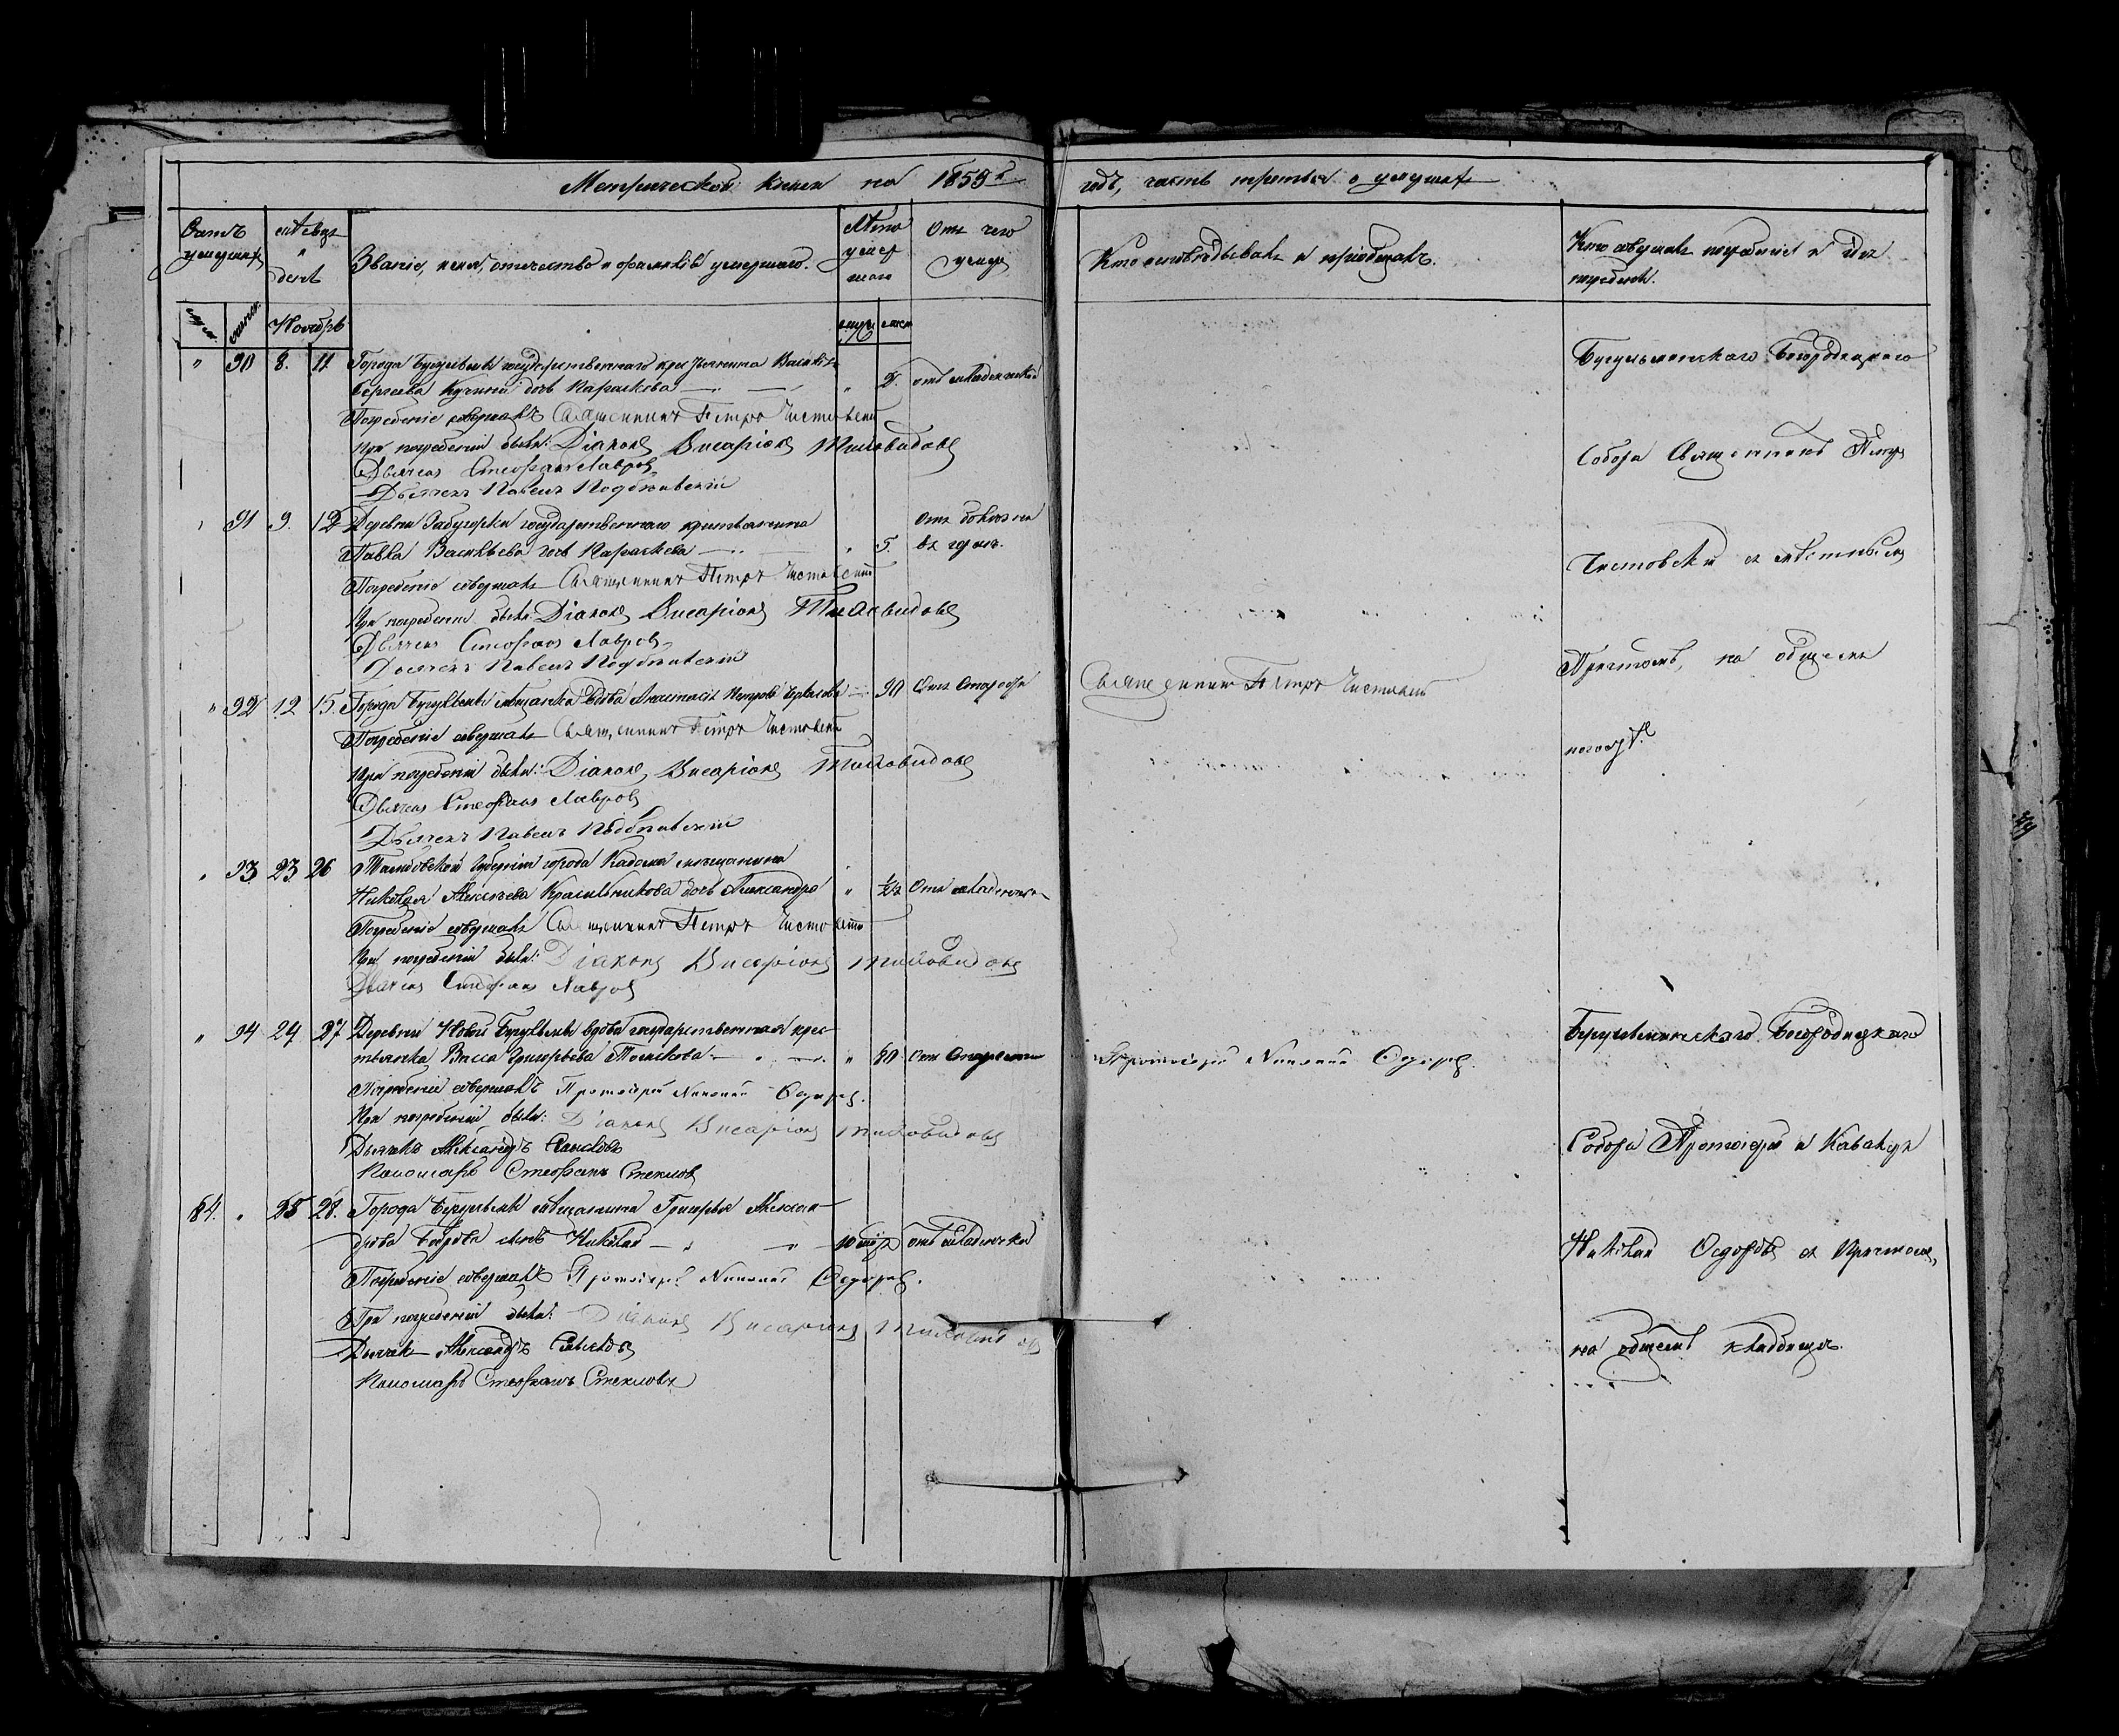 Метрической книги на 1858й годъ, часть третья о умершихъ
Счетъ умершихъ
Мѣсяцъ и день
Званіе, имя, отчество и фамилія умершаго.
Лѣто умершаго
Отъ чего умеръ
Кто исповѣдывалъ и пріобщалъ.
Кто совершалъ погребеніе и гдѣ погребенъ.
Ноябрь
" 90 8. 11 Города Бугульмы государственнаго крестьянина Василія
Сергеева дочь Параскева " 2. отъ младенческой
Погребеніе совершалъ Священникъ Петръ Чистовскій
При погребеніи были: Діаконъ Висаріонъ Миловидовъ
Дьячекъ Стефанъ Лавровъ
Дьячекъ Павелъ Подбѣльскій
91 9. 12 Деревни Забугоровки государственнаго крестьянина
Павла Васильева дочь Параскева " 5. Отъ болѣзни въ горлѣ.
Погребеніе совершалъ Священникъ Петръ Чистовскій
При погребеніи были: Діаконъ Висаріонъ Миловидовъ
Дьячекъ Стефанъ Лавровъ
Дьячекъ Павелъ Подбѣльскій
" 92 12 15. Города Бугульмы мѣщанка вдова Анастасія Петрова 90 Отъ старости Священникъ Петръ Чистовскій
Погребеніе совершалъ Священникъ Петръ Чистовскій
При погребеніи были: Діаконъ Висаріонъ Миловидовъ
Дьячекъ Стефанъ Лавровъ
Дьячекъ Павелъ Подбѣльскій
" 93 23 26 Тамбовской губерніи города Кадома мѣщанина
Николая Алексѣева Красильникова дочь Александра " 1/2 Отъ младенческой
Погребеніе совершалъ Священникъ Петръ Чистовскій
При погребеніи были: Діаконъ Висаріонъ Миловидовъ
Дьячекъ Стефанъ Лавровъ
" 94 24 27 Деревни Новой Бугульмы вдова государственная крес-
тьянка Васса Григорьева " 80 Отъ старости Протоіерей Николай Федоровъ.
Погребеніе совершалъ Протоіерей Николай Федоровъ.
При погребеніи были: Діаконъ Висаріонъ Миловидовъ
Дьячекъ Александръ
Пономарь Стефанъ Стекловъ
84. " 25 28. Города Бугульмы мѣщанина Григорья Алексан-
дрова Боброва сынъ Николай отъ младенческой
Погребеніе совершалъ Протоіерей Николай Федоровъ.
При погребеніи были: Діаконъ Висаріонъ Миловидовъ
Дьячекъ Александръ
Пономарь Стефанъ Стекловъ
Бугульминскаго Богородицкаго
Собора Священникъ Петръ
Чистовскій съ мѣстнымъ
Причтомъ, на общемъ
погостѣ
Бугульминскаго Богородицкаго
Собора Протоіерей и Кавалеръ
Николай Федоровъ съ Причтомъ,
на общемъ кладбищѣ.